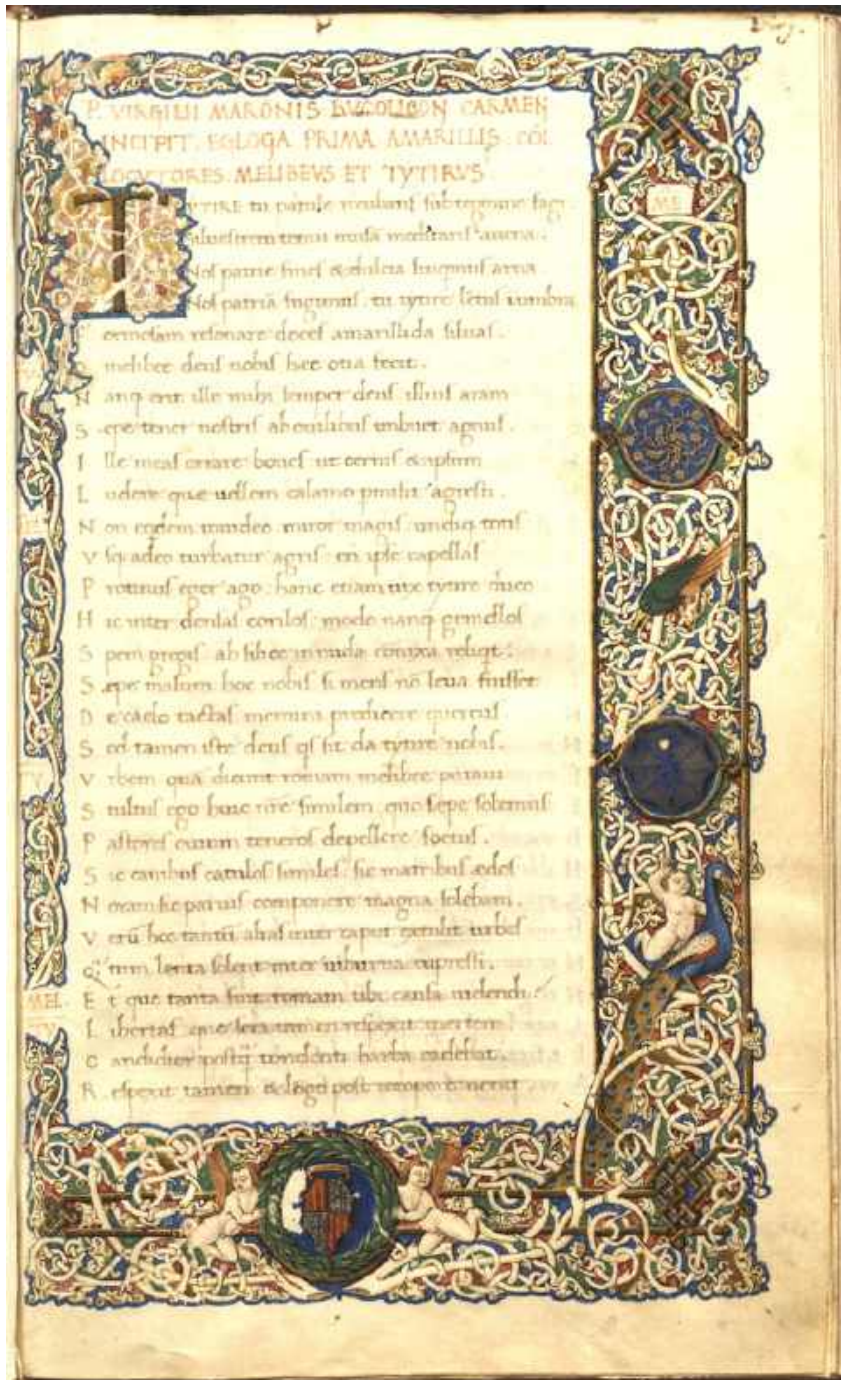 P. VIRGILII MARONIS BVCOLICON CARMEN
INCIPIT. EGLOGA PRIMA AMARILLIS. COL
LOCVTORES. MELIBEVS ET TYTIRVS
ME
TYTIRE tu patule recubans sub tegmine fagi
Siluestrem tenui musā meditaris auena.
Nos patrie fines & dulcia linquimus arua
Nos patriā fugimus. tu tytire lentus in umbra
Formosam resonare doces amarillida siluas.
O melibee deus nobis hec otia fecit.
Nanq erit ille mihi semper deus illius aram
Sepe tener nostris ab ouilibus imbuet agnus.
Ille meas errare boues ut cernis & ipsum
Ludere que uellem calamo pmisit agresti.
Non eqdem inuideo. miror magis. undiq totis
Vsq adeo turbatur agris. en ipse capellas
Protinus eger ago. hanc etiam uix tytire duco
Hic inter densas corilos. modo nanq gemellos
Spem gregis ab silice in nuda conixa reliqt.
Sepe malum hoc nobis si mens nō leua fuisset
De caelo tactas memini predicere quercus.
Sed tamen iste deus qs sit da tytire nobis.
Vrbem quā dicunt romam melibee putaui
Stultus ego huic nrē similem quo sepe solemus
Pastores ouium teneros depellere foetus.
Sic canibus catulos similes. sic matribus aedos
Noram sic paruis componere magna solebam.
Verū hec tantū alias inter caput extulit urbes
Qtum lenta solent inter uiburna cupressi.
MEL. Et que tanta fuit romam tibi causa uidendi
TY Libertas que sera tamen respexit inertem
Candidior postq tondenti barba cadebat.
Respexit tamen & lōgo post tempore uenit